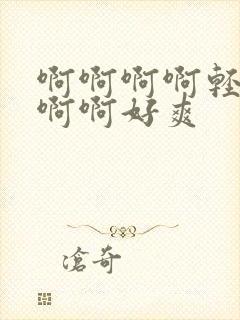 啊啊啊啊轻
啊啊好爽
滄奇